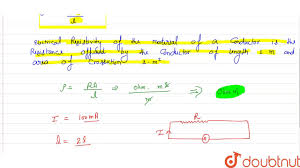 l
Electrical Resistivity of the material of a Conductor is the
Resistance offered by the Conductor of length 1 m and
area of Crossection 1 m²
ρ = RA / l ⇒ ohm · m² / m ⇒ ohm m
I = 100 mA
R
I
l = 2l
doubtnut